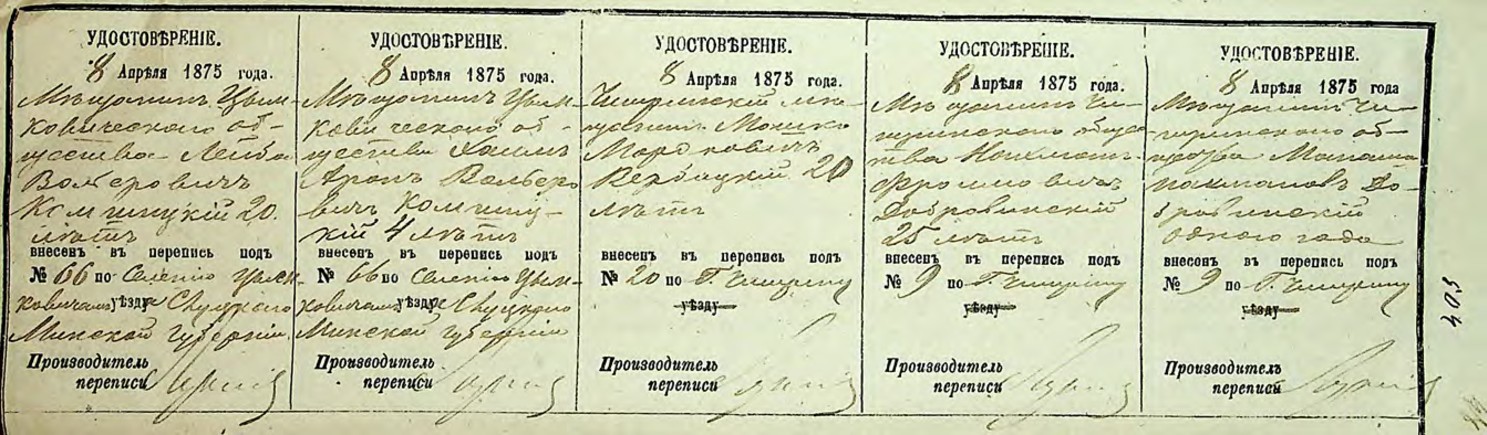 УДОСТОВѢРЕНІЕ.
8 Апрѣля 1875 года.
Мѣщанинъ Цым-
ковическаго об-
щества Лейба
Вольфовичъ
20
лѣтъ
внесенъ въ перепись подъ
№ 66 по Селенію Цым-
ковичамъ уѣзду Слуцкаго
Минской Губерніи
Производитель
переписи
УДОСТОВѢРЕНІЕ.
8 Апрѣля 1875 года.
Мѣщанинъ Цым-
ковическаго об-
щества Хаимъ
Аронъ
4 лѣтъ
внесенъ въ перепись подъ
№ 66 по Селенію Цым-
ковичамъ уѣзду Слуцкаго
Минской Губерніи
Производитель
переписи
УДОСТОВѢРЕНІЕ.
8 Апрѣля 1875 года.
Чигиринскій мѣ-
щанинъ Мошко
Мордковичъ
Вербицкій 20
лѣтъ
внесенъ въ перепись подъ
№ 20 по Г. Чигирину
уѣзду
Производитель
переписи
УДОСТОВѢРЕНІЕ.
8 Апрѣля 1875 года.
Мѣщанинъ Чи-
гиринскаго общес
тва Нахманъ
Фроимовичъ
Добровинскій
25 лѣтъ
внесенъ въ перепись подъ
№ 9 по Г. Чигирину
уѣзду
Производитель
переписи
УДОСТОВѢРЕНІЕ.
8 Апрѣля 1875 года.
Мѣщанинъ Чи-
гиринскаго об-
Нахмановъ До-
бровинскій
одного года
внесенъ въ перепись подъ
№ 9 по Г. Чигирину
уѣзду
Производитель
переписи